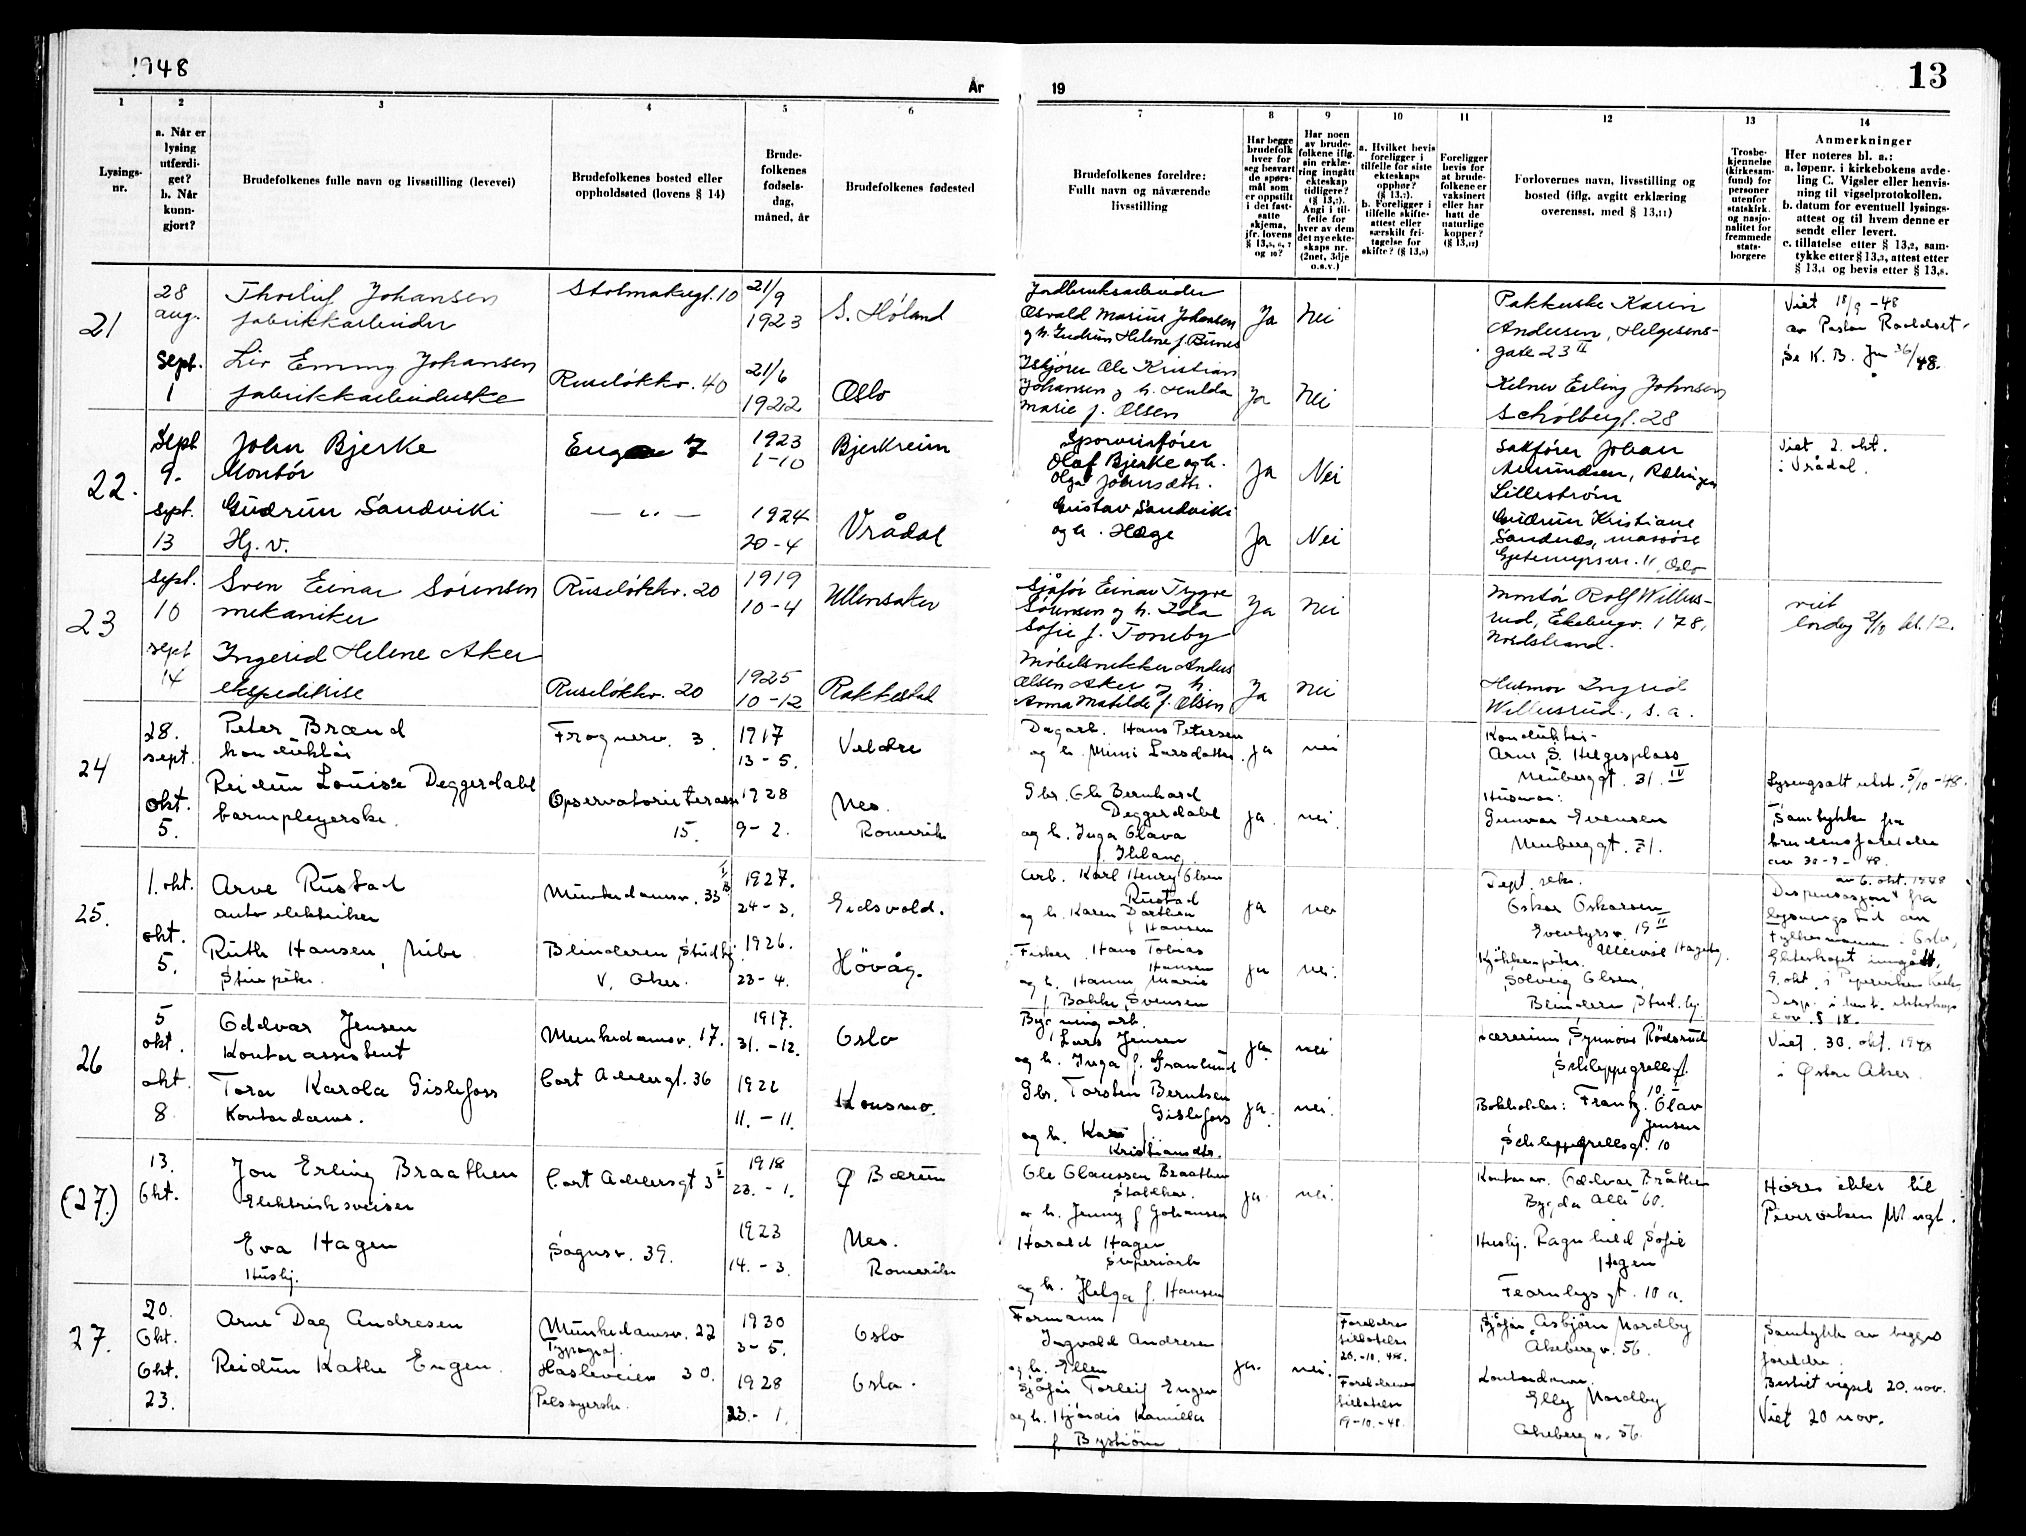 1948
År
19
13
1
2
3
4
5
6
7
8
9
10
11
12
13
14
Lysings-
nr.
a. Når er
lysing
utferdi-
get?
b. Når
kunn-
gjort?
Brudefolkenes fulle navn og livsstilling (levevei)
Brudefolkenes bosted eller
oppholdssted (lovens § 14)
Brude-
folkenes
fødsels-
dag,
måned, år
Brudefolkenes fødested
Brudefolkenes foreldre:
Fullt navn og nåværende
livsstilling
Har begge
brudefolk
hver for
seg besvart
de spørs-
mål som
er oppstilt
i det fast-
satte
skjema,
jfr. lovens
Har noen
av brude-
folkene iflg.
sin erklæ-
ring inngått
ekteskap
tidligere?
Angi i til-
felle for
hver av dem
det nye ekte-
skaps nr.
(2net, 3dje
o.s.v.)
a. Hvilket bevis
foreligger i
tilfelle for siste
ekteskaps
opphør?
b. Foreligger i
tilfelle skifte-
attest eller
særskilt fri-
tagelse for
skifte?
Foreligger
bevis for
at brude-
folkene er
vaksinert
eller har
hatt de
naturlige
kopper?
Forlovernes navn, livsstilling og
bosted (iflg. avgitt erklæring
overensst. med § 13,11)
Trosbe-
kjennelse
(kirkesam-
fund) for
personer
utenfor
statskirk.
og nasjo-
nalitet for
fremmede
stats-
borgere
Anmerkninger
Her noteres bl. a.:
a. løpenr. i kirkebokens avde-
ling C. Vigsler eller henvis-
ning til vigselprotokollen.
b. datum for eventuell lysings-
attest og til hvem denne er
sendt eller levert.
c. tillatelse etter § 13,2, sam-
tykke etter § 13,3, attest etter
§ 13,4 og bevis etter § 13,8.
21
28
aug.
Sept.
1
Thorleif Johansen
fabrikkarbeider
21/9
1923
S. Høland
Jordbruksarbeider
Osvald Marius Johansen
Ja
Nei
Karin
Andersen, Helgesens-
gate 23 II
Viet 18/9 - 48
Se K. B.
Liv Emmy Johansen
fabrikkarbeiderske
Ruseløkkv. 40
21/6
1922
Oslo
Ole Kristian
Johansen og h. Hulda
Marie f. Olsen
Ja
Nei
Kelner Erling Johnsen
28
22.
Sept
9.
sept.
13
John Bjerke
Montør
7
1923
1-10
Bjerkreim
Olaf Bjerke og h.
Olga
Ja
Nei
Johan
Lillestrøm
Viet 2. okt.
i Vrådal.
Gudrun Sandviki
Hj. v.
— „ —
1924
20-4
Vrådal
Gustav Sandviki
og h. Hæge
Ja
Nei
Gudrun Kristiane
Sandnes, massøse
11, Oslo
23
Sept.
10
sept
14
Sven Einar Sørensen
mekaniker
Ruseløkkv. 20
1919
10-4
Ullensaker
Sjåfør Einar Trygve
Sørensen og h. Ida
Sofie f. Tomby
Ja
Nei
Montør Rolf
178,
Nordstrand.
viet
lørdag 2/10 kl. 12.
Ingerid Helene Aker
ekspeditrise
Ruseløkkv. 20
1925
10-12
Rakkestad
Møbelsnekker Anders
Olsen Aker og h.
Anna Matilde f. Olsen
Ja
Nei
Husmor Ingrid
s. a.
24
28.
sept.
okt.
5.
Peter Brænd
konduktør
Frognerv. 3.
1917
13-5.
Veldre
Dagarb. Hans Petersen
og h. Mimi Larsdatter
ja
nei
Konduktør
Arne S. Helgesplass
Neuberggt. 31. IV
Reidun Louise Deggerdahl
barnepleyerske.
Opservatorie terasse
15.
1928
9-2.
Nes.
Romerik
Gbr. Ole Bernhard
Deggerdahl
og h. Inga Olava
ja.
nei.
Husmor:
Gunvor Evensen
Neuberggt. 31.
Lysingsatt utst. 5/10-48.
Samtykke fra
brudens foreldre
av 30-9-48.
25.
1. okt.
okt.
5.
Arve Rustad
auto elektriker
Munkedamsv. 33
1927.
24-3.
Eidsvold.
Arb. Karl Henry Olsen
Rustad
og h. Karen Dorthea
f Hansen
ja
nei
Dept. sek.
Oskar Oskarsen
19 II
Ullevål Hageby.
av 6. okt. 1948
Dispensasjon fra
lysningstid av
fylkesmannen i Oslo,
Ekteskapet inngått,
9. okt. i Pipervikens Kirke
Ruth Hansen,
Blinderen Studby.
V. Aker.
1926.
23-4.
Høvåg.
Fisker Hans Tobias
Hansen
og h. Hanna Marie
f Bakke Svensen
ja
nei.
Solveig Olsen,
Blindern, Stud.by.
26
5
okt.
okt.
8.
Oddvar Jensen
Kontorassistent
Munkedamsv. 17.
1917.
31.-12.
Oslo
Bygningarb.
Lars Jensen
og h. Inga f. Granlund
ja.
nei
Lærerinne Synnøve Rødsrud
Schleppegrellsgt.
10.
Viet. 30. okt. 1948
i Østre Aker.
Tora Karola Gislefoss
Kontordame.
Cort Adelersgt. 36
11.-11.
Konsmo.
Gbr. Torsten Berntsen
Gislefoss
og h. Kari
Kristiansdtr.
ja.
nei.
Bokholder: Frantz Olav
Jensen
Schleppegrellsgt. 10
(27.)
13.
Okt.
Jon Erling Braathen
Elektrisksveiser
Cort Adelersgt 3
1918
23.-1.
Ø Bærum
Ole Olaussen Braathen
og h. Jenny f Johansen
ja.
nei.
Kontorav. Oddvar Bråthen
Bygdø Allé 60.
Høres ikke til
Eva Hagen
Husbj.
Sognsv. 39.
1923
14.-3.
Nes.
Romerike
Harald Hagen
og h. Helga f. Hansen
Husbj. Ragnhild Sofie
Hagen
Fearnleysgt. 10 a.
27.
20.
Okt.
Okt.
23.
Arne Dag Andresen
Munkedamsv. 22
Typograf.
1930
3-5.
Oslo
Formann
Ingvald Andresen
og h. Ellen
ja.
nei.
Foreldre
tillatelse
20.-10.48.
Sjåfør Asbjørn Nordby
Åkebergv. 56.
Samtykke av begges
foreldre.
Bestilt vigsel 20. nov.
Viet 20 nov.
Reidun Kathe Engen.
Hasleveien 30.
Pelssyerske.
1928
23.-1.
Oslo.
Sjåfør Torleif Engen
og h. Hjørdis Kamilla
f Bystrøm
Foreldrene
tillatelse
19-10.-48.
Kontordame.
Elly Nordby
Akebergv. 56.